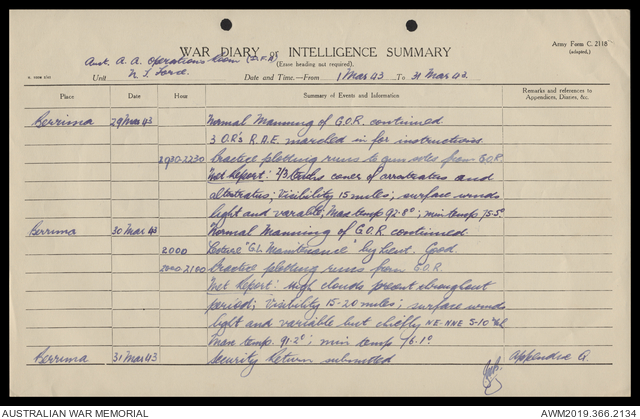 Army Form C. 2118
(adapted.)
WAR DIARY or INTELLIGENCE SUMMARY
(Erase heading not required).
Aust. A.A. Operations Room (D.F.A)
Unit N.T. Force.
Date and Time.—From 1 Mar 43 To 31 Mar 43
Place Date Hour Summary of Events and Information Remarks and references to Appendices, Diaries, &c.
Berrima 29 Mar 43 Normal Manning of G.O.R. continued
3 O.R's R.A.E. marched in for instructions
2030-2230 Practice plotting runs to gun sites from G.O.R.
Met Report: 7/3 Tenths cover of and
altostratus; Visibility 15 miles; surface winds
light and varable, Max temp 92.8°; min temp 75.5°
Berrima 30 Mar 43 Normal Manning of G.O.R. continued.
2000 Lecture "G.L. Maintinance" by Lieut. Good.
2000-2100 Practice plotting runs from G.O.R.
Met Report: High clouds present throughout
period; Visibility 15-20 miles; surface winds
light and variable but chiefly NE-NNE 5-10
Max temp. 91.2°; min temp 76.1°
Berrima 31 Mar 43 Security Return submitted Appendix A.
AUSTRALIAN WAR MEMORIAL
AWM2019.366.2134